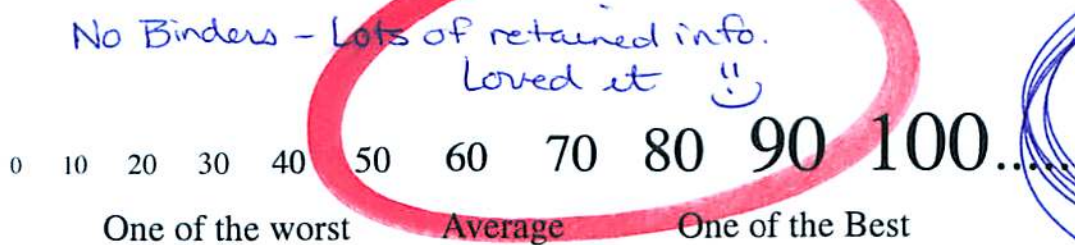 No Binders - Lots of retained info.
Loved it
0 10 20 30 40 50 60 70 80 90 100.....
One of the worst Average One of the Best